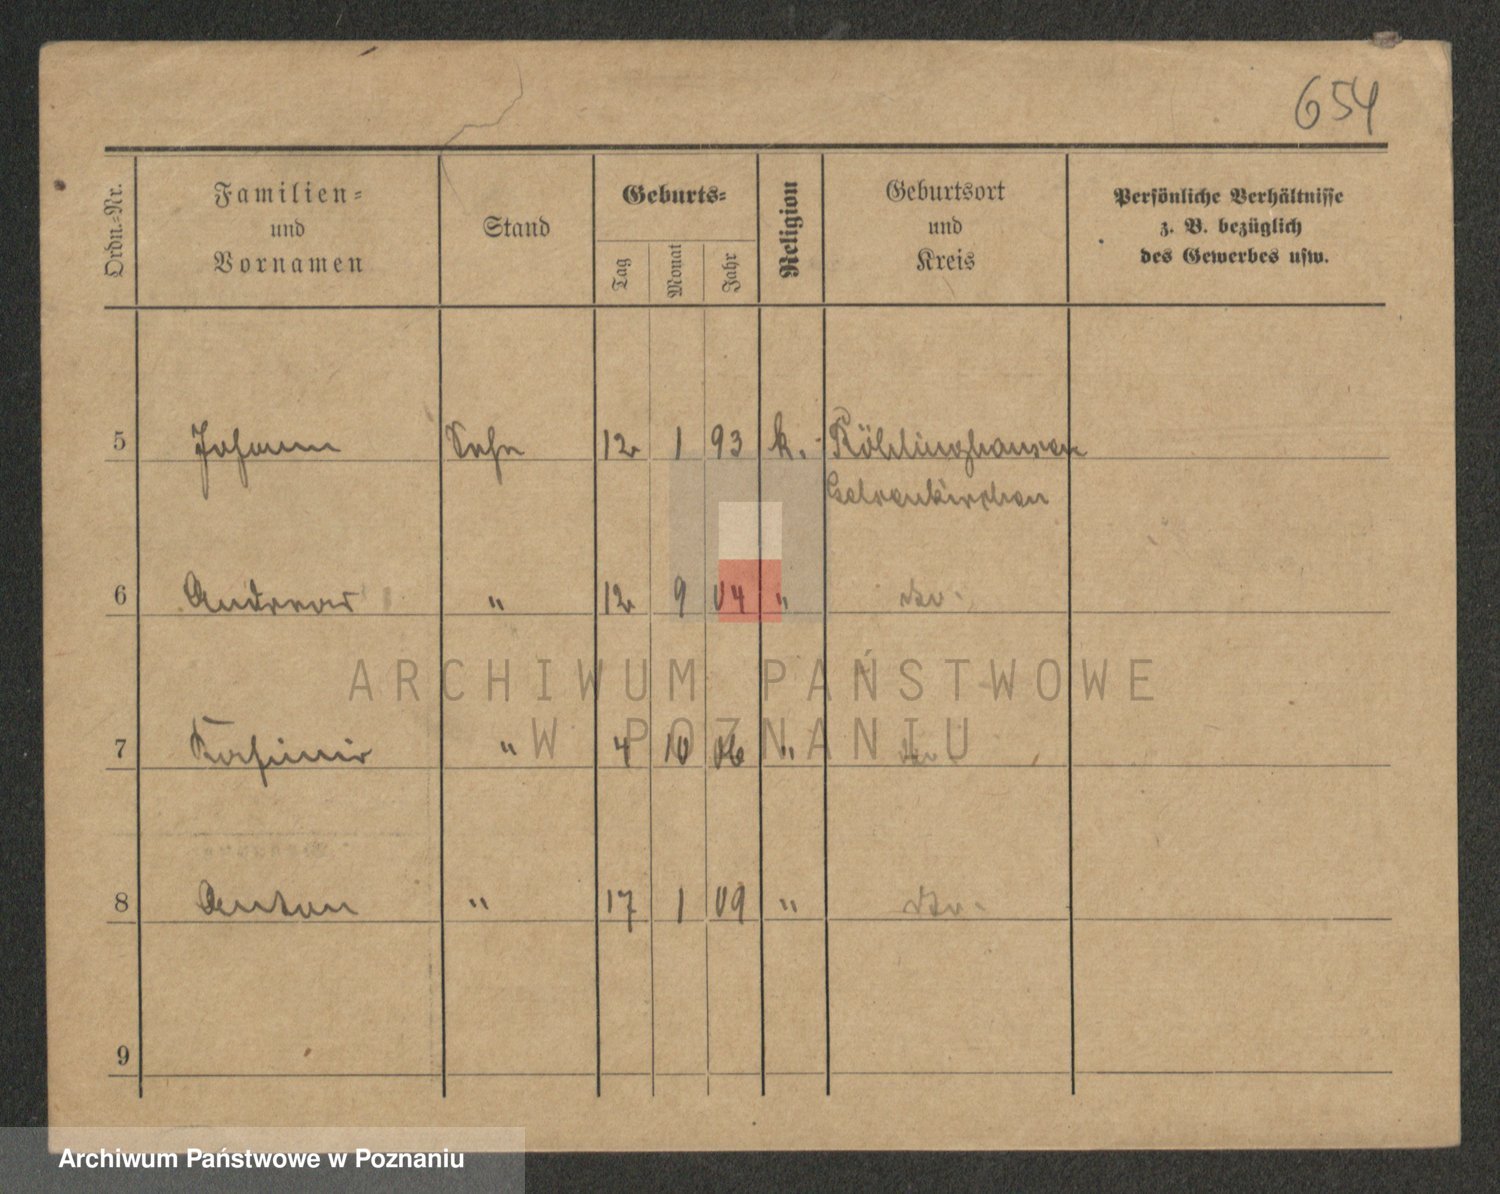 654
Ordn.=Nr.
Familien=
und
Vornamen
Stand
Geburts=
Tag
Monat
Jahr
Religion
Geburtsort
und
Kreis
Persönliche Verhältnisse
z. B. bezüglich
des Gewerbes usw.
5 Johann Sohn 12 1 93 k. Röhlinghausen
Gelsenkirchen
6 Andreas " 12 9 04 " do.
7 Kasimir " 4 10 06 " do.
8 Anton " 17 1 09 " do.
9
ARCHIWUM PAŃSTWOWE
W POZNANIU
Archiwum Państwowe w Poznaniu